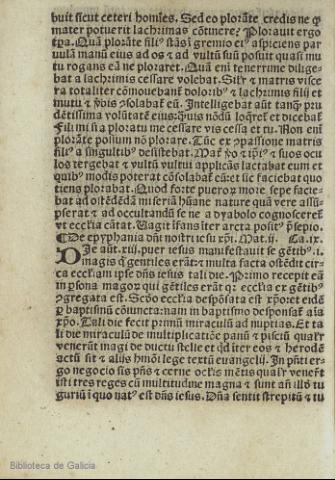 buit sicut ceteri homĩes. Sed eo plorãte credis ne ꝙ
mater potuerit lachrimas cõtinere? Plorauit ergo
Quã plorãte filiꝰ stãs ĩ gremio eiꝰ aspiciens par
uulã manũ eius ad os ⁊ ad vultũ suũ posuit quasi mu
tu rogans eã ne ploraret. Quã eni tenerrime dilige
bat a lachrimis cessare volebat. Silr ⁊ matris visce
ra totaliter cõmouebanť dolorib⁹ ⁊ lachrimis filij et
mutu ⁊ solabať eũ. Intelligebat aũt tanqȝ pru
dẽtissima volũtatẽ eius: quis nõdũ loqreť et dicebat
Fili mi si a ploratu me cessare vis cessa et tu. Non eni
plorãte possum nõ plorare. Tũc ex passione matris
filiꝰ a singultibꝰ desistebat. et suos ocu
los tergebat ⁊ vultũ vultui applicãs lactabat eum et
quibꝰ modis poterat cõsolabať eũ: et sic faciebat quo
tiens plorabat. Quod forte pueroꝝ more sepe facie
bat ad ostẽdẽdã miseriã hũane nature quã vere assũ
pserat ⁊ ad occultandũ se ne a dyabolo cognosceret
vt ecclia cãtat. Uagit ĩfans ĩter arcta positꝰ psepio.
¶De epyphania dni nostri iesu xpi. Mat. ij. Ca. ix.
Die aũt .xiij. puer iesus manifestauit se gẽtibꝰ .i.
magis q gentiles erãt ⁊ multa facta ostẽdit cir
ca eccliam ipse dñs iesus tali die. Primo recepit eã
in psona magoꝝ qui gẽtiles erãt qr ecclia ex gẽtibꝰ
ꝯgregata est. Scdo ecclia despõsata est xpo: et eidẽ
p baptismũ cõiuncta: nam in baptismo desponsať aĩa
xpo. Tali die fecit primũ miraculũ ad nuptias. Et ta
li die miraculũ de multiplicatiõe panũ ⁊ pisciũ qualr
venerũt magi de ductu stelle et qd iter eos ⁊ herodẽ
actũ sit ⁊ alijs hmõi lege textũ euangelij. In pñti er
go negocio sis pñs ⁊ cerne oclis mẽtis qualr venert
isti tres reges cũ multitudine magna ⁊ sunt añ illd tu
guriũ i quo natꝰ est dñs iesus. Dña sentit strepitũ ⁊ tu
Biblioteca de Galicia